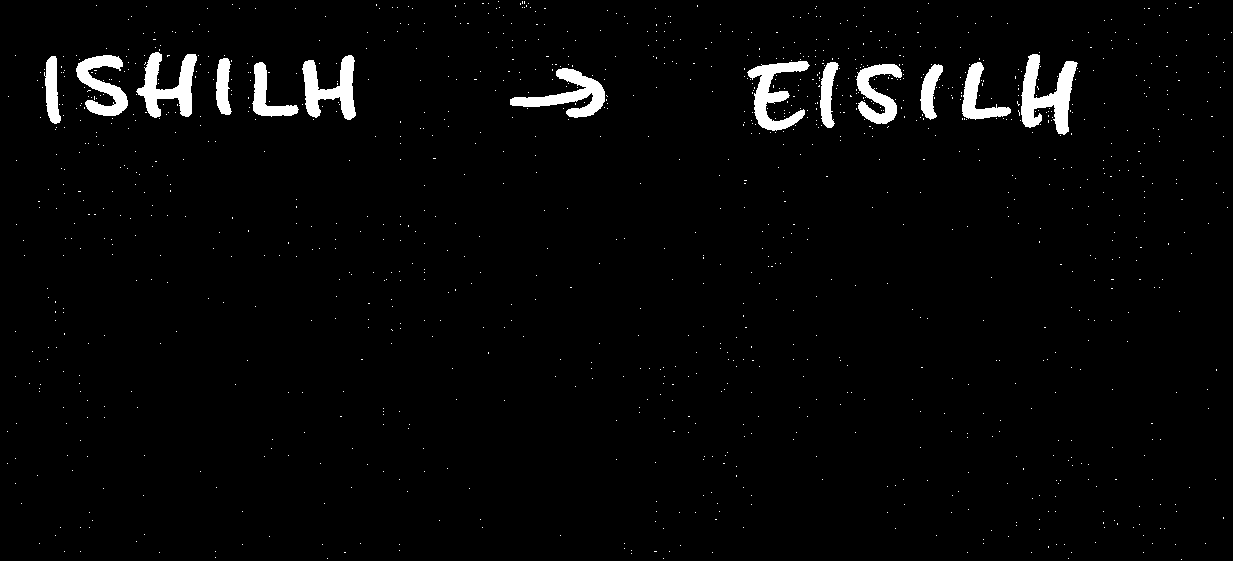 ISHILH → EISILH